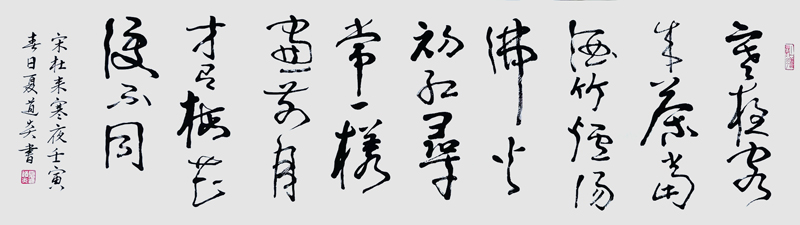 寒夜客
来茶當
酒竹爐湯
沸火
初紅尋
常一樣
窗前月
才有梅花
便不同
宋杜耒寒夜壬寅
春日夏道書